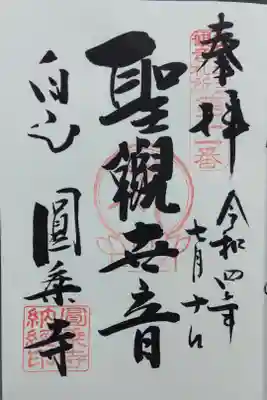 奉拝
第十一番
令和四年
七月十日
聖觀世音
白山
圓乗寺
圓乗寺
納経印